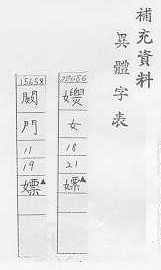 補充資料
異體字表
女
18
21
嫖▲
15658
闝
門
11
19
嫖▲